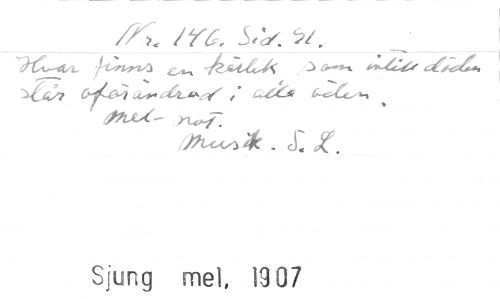 Nr. 146. Sid. 91.
Hvar finns en kärlek som intill döden
står oförändrad i alla öden.
Mel- not.
Musik. S. L.
Sjung mel, 1907